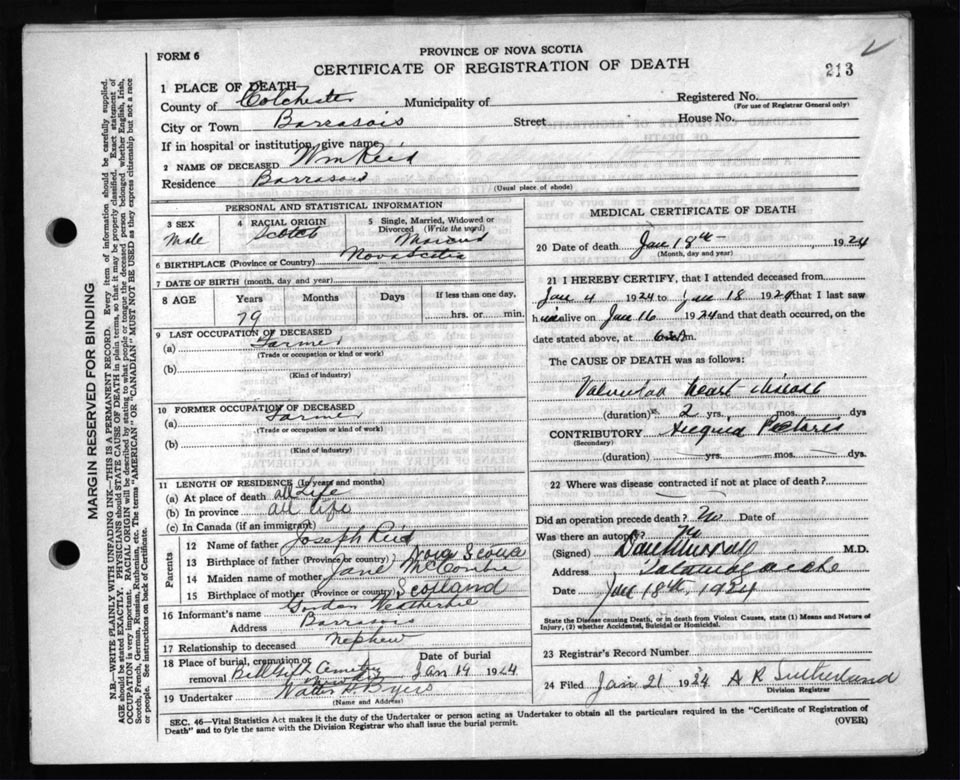 FORM 6
PROVINCE OF NOVA SCOTIA
CERTIFICATE OF REGISTRATION OF DEATH
213
1 PLACE OF DEATH
County of Colchester Municipality of Registered No.
(For use of Registrar General only)
City or Town Barrasois Street House No.
If in hospital or institution, give name
2 NAME OF DECEASED Wm Reid
Residence Barrasois
(Usual place of abode)
PERSONAL AND STATISTICAL INFORMATION
3 SEX Male
4 RACIAL ORIGIN Scotch
5 Single, Married, Widowed or Divorced (Write the word) Married
6 BIRTHPLACE (Province or Country) Nova Scotia
7 DATE OF BIRTH (month, day and year)
8 AGE Years Months Days If less than one day,
79 hrs. or min.
9 LAST OCCUPATION OF DECEASED
(a) Farmer
(Trade or occupation or kind or work)
(b)
(Kind of industry)
10 FORMER OCCUPATION OF DECEASED
(a) Farmer
(Trade or occupation or kind or work)
(b)
(Kind of industry)
11 LENGTH OF RESIDENCE (In years and months)
(a) At place of death all Life
(b) In province all life
(c) In Canada (if an immigrant)
Parents
12 Name of father Joseph Reid
13 Birthplace of father (Province or country) Nova Scotia
14 Maiden name of mother Jane
15 Birthplace of mother (Province or country) Scotland
16 Informant's name Gordon Weatherbie
Address Barrasois
17 Relationship to deceased Nephew
18 Place of burial, cremation or removal Cemetry
Date of burial Jan 19 1924
19 Undertaker Walter Byers
(Name and Address)
MEDICAL CERTIFICATE OF DEATH
20 Date of death Jan 18th 1924
(Month, day and year)
21 I HEREBY CERTIFY, that I attended deceased from
Jan 4 1924 to Jan 18 1924 that I last saw
him alive on Jan 16 1924 and that death occurred, on the
date stated above, at m.
The CAUSE OF DEATH was as follows:
Valvular heart disease
(duration) 2 yrs. mos. dys
CONTRIBUTORY Pectoris
(Secondary)
(duration) yrs. mos. dys
22 Where was disease contracted if not at place of death?
Did an operation precede death? No Date of
Was there an autopsy? No
(Signed) Dan Murray M.D.
Address Tatamagouche
Date Jan 18th, 1924
State the Disease causing Death, or in death from Violent Causes, state (1) Means and Nature of
Injury, (2) whether Accidental, Suicidal or Homicidal.
23 Registrar's Record Number
24 Filed Jan 21 1924 A R Sutherland
Division Registrar
SEC. 46—Vital Statistics Act makes it the duty of the Undertaker or person acting as Undertaker to obtain all the particulars required in the "Certificate of Registration of
Death" and to fyle the same with the Division Registrar who shall issue the burial permit. (OVER)
MARGIN RESERVED FOR BINDING
N.B.—WRITE PLAINLY WITH UNFADING INK—THIS IS A PERMANENT RECORD. Every item of information should be carefully supplied.
AGE should be stated EXACTLY. PHYSICIANS should STATE CAUSE OF DEATH in plain terms, so that it may be properly classified. Exact statement of
OCCUPATION is very important. RACIAL ORIGIN will be described by stating to what people or tongue the deceased person belonged whether English, Irish,
Scotch, French, German, Russian, Ruthenian, etc. The terms "AMERICAN" OR "CANADIAN" MUST NOT BE USED as they express citizenship but not a race
or people. See instructions on back of Certificate.